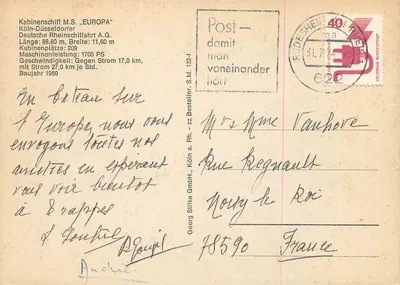 Kabinenschiff M.S. „EUROPA"
Köln-Düsseldorfer
Deutsche Rheinschiffahrt A.G.
Länge: 88,60 m, Breite: 11,60 m
Kabinenplätze: 209
Maschinenleistung: 1700 PS
Geschwindigkeit: Gegen Strom 17,0 km,
mit Strom 27,0 km je Std.
Baujahr 1960
En bateau sur
l'Europe, nous vous
envoyons toutes nos
amitiés en espérant
vous voir bientôt
à Trappes
André
Georg Stilke GmbH., Köln a. Rh. - zz Bestellnr. S.M. 132-f
Post –
damit
man
voneinander
hört
RÜDESHEIM
31.7.
622
40
Mr & Mme Vanhove
Rue Regnault
Noisy le Roi
78590 France